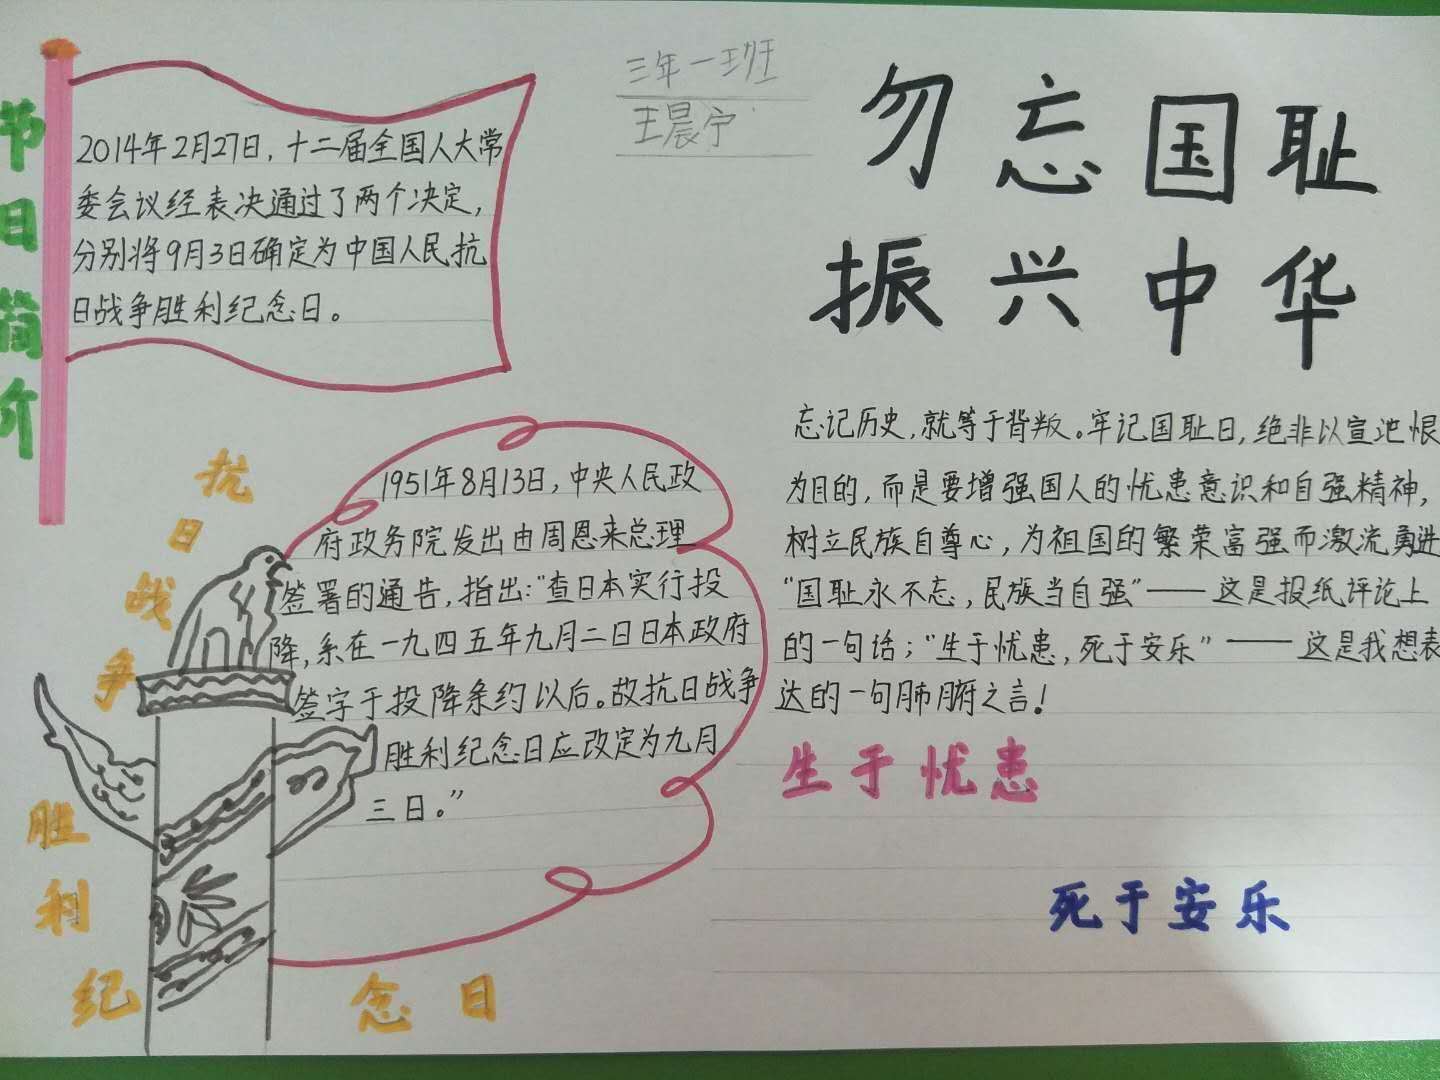 三年一班
王晨宁
勿忘国耻
振兴中华
节日简介
2014年2月27日，十二届全国人大常
委会议经表决通过了两个决定，
分别将9月3日确定为中国人民抗
日战争胜利纪念日。
抗日战争胜利纪念日
1951年8月13日，中央人民政
府政务院发出由周恩来总理
签署的通告，指出：“查日本实行投
降，系在一九四五年九月二日日本政府
签字于投降条约以后。故抗日战争
胜利纪念日应改定为九月
三日。”
忘记历史，就等于背叛。牢记国耻日，绝非以宣泄恨
为目的，而是要增强国人的忧患意识和自强精神，
树立民族自尊心，为祖国的繁荣富强而激流勇进
“国耻永不忘，民族当自强”——这是报纸评论上
的一句话；“生于忧患，死于安乐”——这是我想表
达的一句肺腑之言！
生于忧患
死于安乐